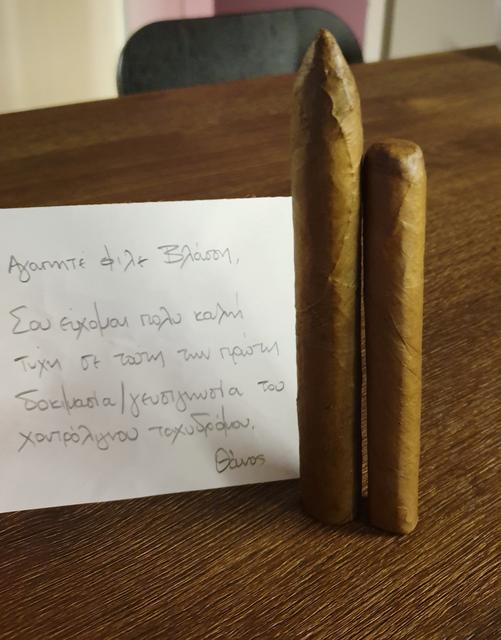 Αγαπητέ φίλε Βλάση,
Σου εύχομαι πολύ καλή
τύχη σε τούτη την πρώτη
δοκιμασία/γευσιγνωσία του
χοντρόλιγνου ταχυδρόμου.
Θάνος